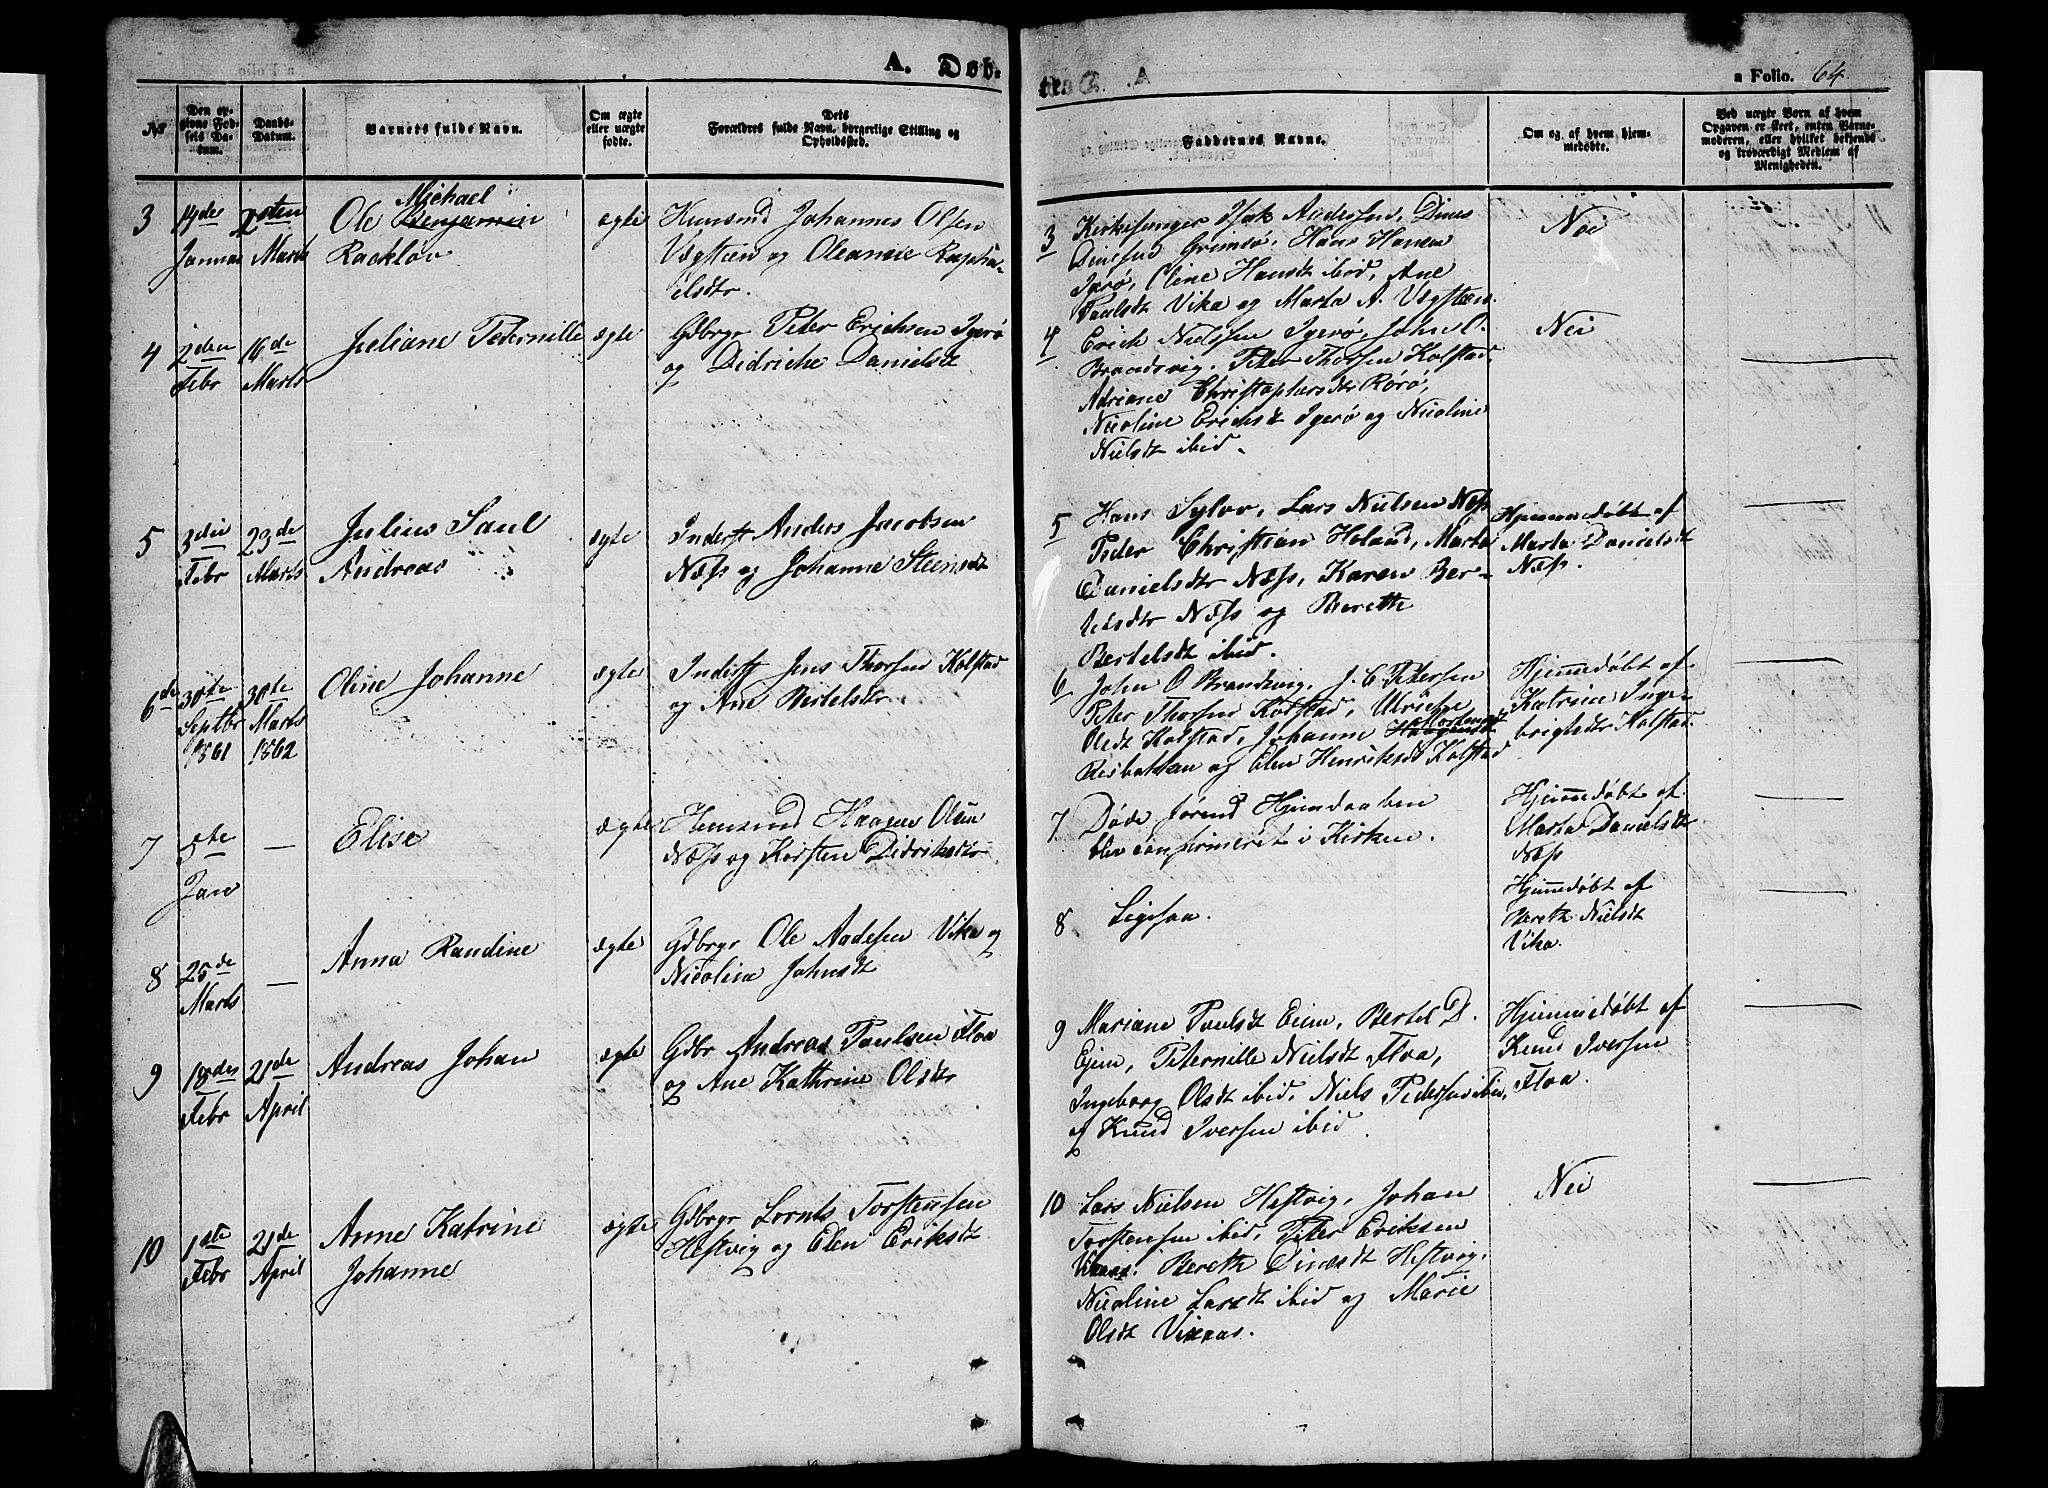 A. Døb-
№
Den op-
givne Fød-
sels Da-
tum.
Daabs-
Datum.
Barnets fulde Navn.
Om ægte
eller uægte
fødte.
Dets
Forældres fulde Navn, borgerlige Stilling og
Opholdssted.
3
14des
Januar
2den
Marts
Michael
Ole Benjamin
Rackløv
ægte
Huusmd Johannes Olsen
Vægstein og Oleanne Rapha-
elsdtr.
4
2den
Febr
16de
Marts
Juliane Peternille
ægte
Gdbrgr Peter Erichsen Igerø
og Didriche Danielsdt
5
3die
Febr
23de
Marts
Julius Saul
Andreas
ægte
Inderst Anders Jacobsen
Næss og Johanne Steensdt
6
30te
Septbr
1861
30te
Marts
1862
Oline Johanne
ægte
Inderst Jens Thorsen Kolstad
og Ane Bertelsdtr.
7
5te
Jan
—
Elise
ægte
Huusmd Haagen Olsen
Næss og Kirsten Didriksdtr
8
25de
Marts
—
Anna Randine
ægte
Gdbrgr Ole Aadesen Vika og
Nicoline Johnsdt
9
18des
Febr
21de
April
Andreas Johan
ægte
Gdbr Andreas Paulsen Floa
og Ane Kathrine Olsdtr
10
1ste
Febr
21de
April
Anne Katrine
Johanne
ægte
Gdbrgr Lornts Torstensen
Hestvig og Elen Eriksdt
te.
a Folio. 64
Faddernes Navne.
Om og af hvem hjem-
medøbte.
Ved uægte Børn af hvem
Opgaven er skeet, enten Barne-
moderen, eller hvilket bekjendt
og troværdigt Medlem af
Menigheden.
3
Kirkesanger Isak Andersen, Dines
Dinesen Grimsø, Hans Hansen
Igerø, Oline Hansdt ibid, Ane
Paulsdt Vika og Marta A. Vægsteen.
Nei
4
Erich Nielssen Igerø, John O.
Brandsvig, Peter Thorsen Kolstad,
Adriane Christophersdtr Rørø,
Nicoline Erichsdt Igerø og Nicoline
Nielsdt ibid.
Nei
5
Hans Sylov, Lars Nielsen Næss
Peder Christian Holand, Marta
Danielsdtr Næss, Karen Ber-
telsdtr Næss og Bereth
Bertelsdt ibid.
Hjemmedøbt af
Marta Danielsdt
Næss.
6
John O Brandsvig, J. C. Petersen
Peter Thorsen Kolstad, Ulriche
Olsdt Kolstad, Johanne
Risbakken og Elen Henriksdt Kolstad
Hjemmedøbt af
Katrine Inge-
brigtsdtr Kolstad.
7
Døde førend Hjemdaaben
blev confirmeret i Kirken.
Hjemmedøbt af
Marta Danielsdtr
Næss
8
Ligesaa.
Hjemmedøbt af
Bereth Nielsdt
Vika.
9
Mariane Paulsdt Eiem, Bertel D.
Ejem, Peternille Nielsdt Floa,
Ingeborg Olsdt ibid, Niels Pedersen ibid,
og Knud Iversen ibid.
Hjemmedøbt af
Knud Iversen
Floa.
10
Lars Nielsen Hestvig, Johan
Torstensen ibid, Peter Eriksen
Bereth Dinesdt Hestvig,
Nicoline Larsdt ibid og Marie
Olsdt Vixaas.
Nei